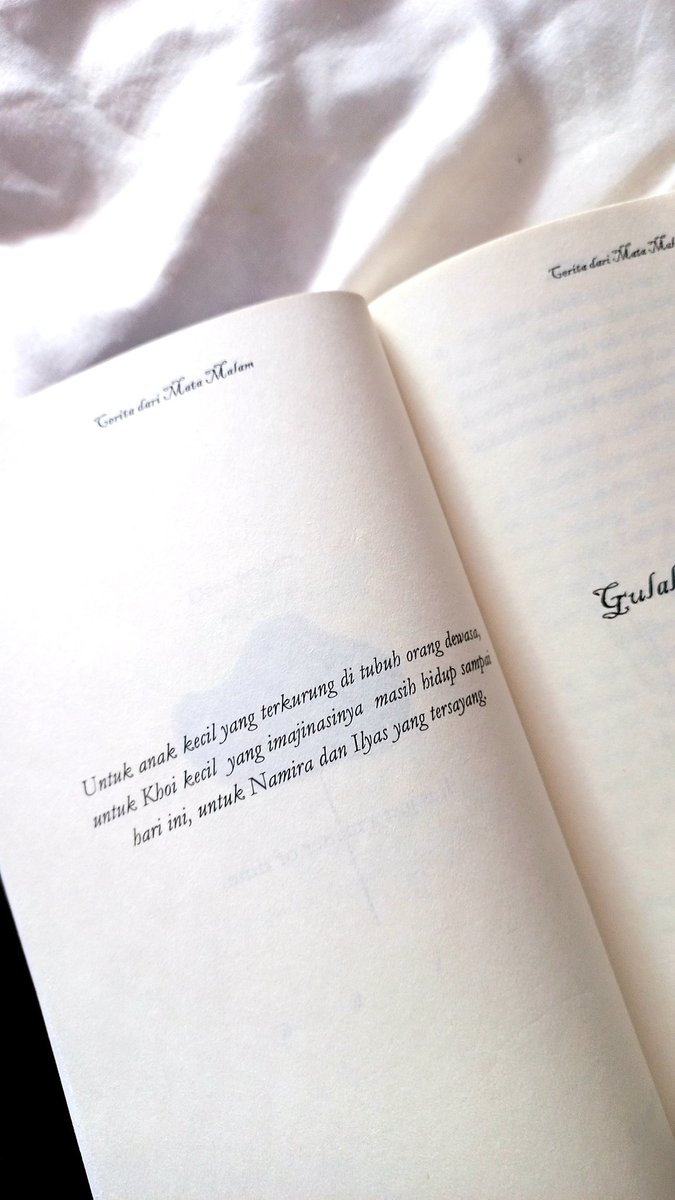 Cerita dari Mata Malam
Untuk anak kecil yang terkurung di tubuh orang dewasa,
untuk Khoi kecil yang imajinasinya masih hidup sampai
hari ini, untuk Namira dan Ilyas yang tersayang.
Cerita dari Mata